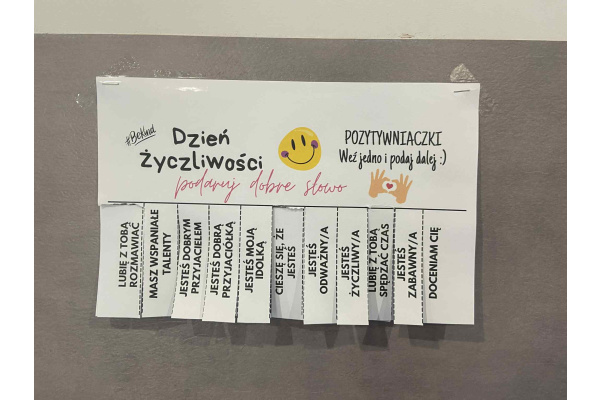 #BeKind
Dzień
Życzliwości
podaruj dobre słowo
POZYTYWNIACZKI
Weź jedno i podaj dalej :)
LUBIĘ Z TOBĄ
ROZMAWIAĆ
MASZ WSPANIAŁE
TALENTY
JESTEŚ DOBRYM
PRZYJACIELEM
JESTEŚ DOBRĄ
PRZYJACIÓŁKĄ
JESTEŚ MOJĄ
IDOLKĄ
CIESZĘ SIĘ, ŻE
JESTEŚ
JESTEŚ
ODWAŻNY/A
JESTEŚ
ŻYCZLIWY/A
LUBIĘ Z TOBĄ
SPĘDZAĆ CZAS
JESTEŚ
ZABAWNY/A
DOCENIAM CIĘ